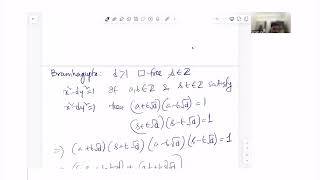 Bramhagupta: d>1 □-free d∈ℤ
x²-dy²=1 if a,b∈ℤ & s,t∈ℤ satisfy
x²-dy²=1 then (a+b√d)(a-b√d)=1
(s+t√d)(s-t√d)=1
⇒ (a+b√d)(s+t√d)(a-b√d)(s-t√d)=1